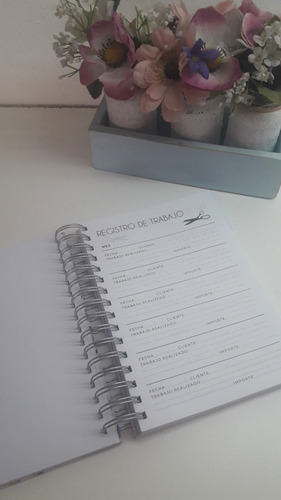 REGISTRO DE TRABAJO
MES
FECHA CLIENTE
TRABAJO REALIZADO IMPORTE
FECHA CLIENTE
TRABAJO REALIZADO IMPORTE
FECHA CLIENTE
TRABAJO REALIZADO IMPORTE
FECHA CLIENTE
TRABAJO REALIZADO IMPORTE
FECHA CLIENTE
TRABAJO REALIZADO IMPORTE
FECHA CLIENTE
TRABAJO REALIZADO IMPORTE